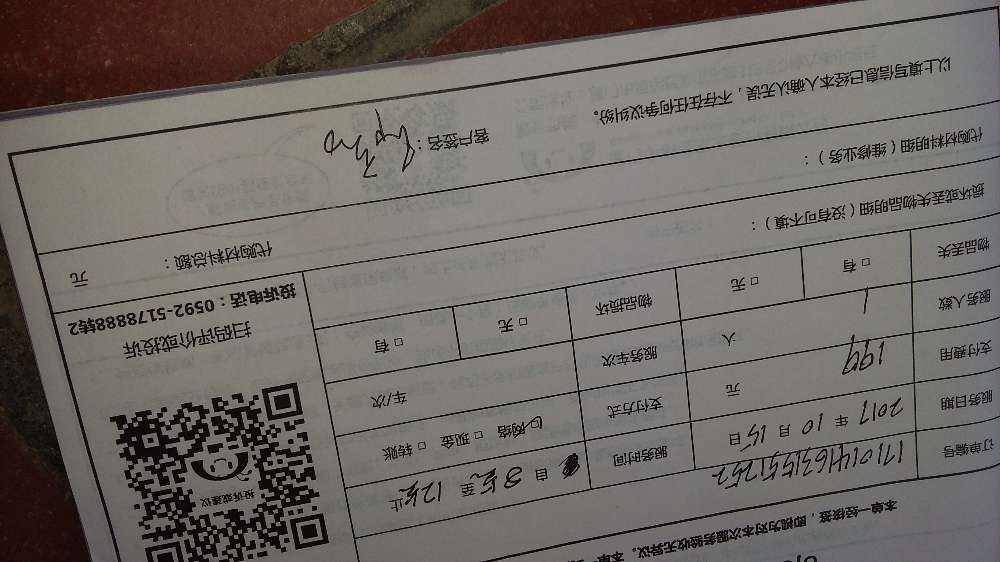 本单一经核签，即视为对本次服务验收无异议。本单
订单编号 171014163155152S2
服务日期 2017 年 10 月 15 日 服务时间 自 8点 至 12点 止
支付费用 199 元 支付方式 □网络 □现金 □转账
服务人数 1 人 服务车次 车/次
物品丢失 □有 □无 物品损坏 □无 □有
投诉或建议
扫码评价或投诉
投诉电话：0592-5178888转2
损坏或丢失物品明细（没有可不填）：
代购材料明细（维修业务）：
代购材料总额： 元
以上填写信息已经本人确认无误，不存在任何争议纠纷。 客户签名：